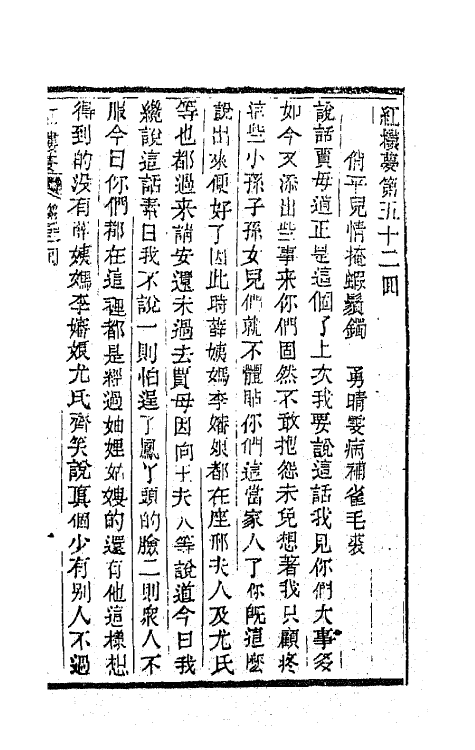 紅樓夢第五十二回
俏平兒情掩蝦鬚鐲　勇晴雯病補雀毛裘
說話賈母道正是這個了上次我要說這話我見你們大事多
如今又添出些事來你們固然不敢抱怨未免想著我只顧疼
這些小孫子孫女兒們就不體貼你們這當家人了你既這麼
說出來便好了因此時薛姨媽李嬸娘都在座邢夫人及尤氏
等也都過來請安還未過去賈母因向王夫人等說道今日我
纔說這話素日我不說一則怕逞了鳳丫頭的臉二則衆人不
服今日你們都在這裡都是經過妯娌姑嫂的還有他這樣想
得到的没有薛姨媽李嬸娘尤氏齊笑說真個少有别人不過
紅樓夢 第五二回